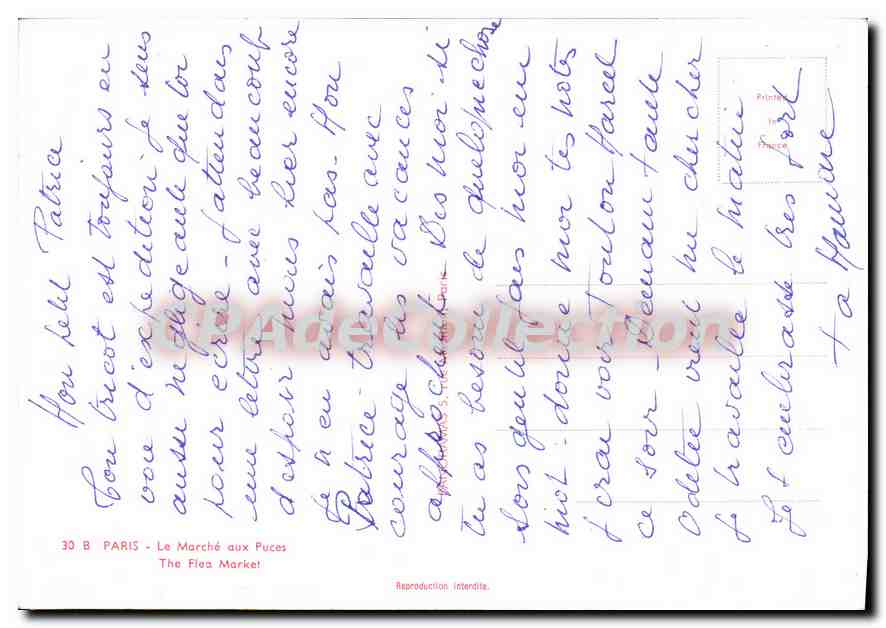 Mon petit Patrice
Ton tricot est toujours en
voie d'expedition je suis
aussi négligeante que toi
pour ecrire - j'attendais
une lettre avec beaucoup
d'espoir mais hier encore
je n'en avais pas - Mon
Patrice - travaille avec
courage les vacances
approchent - Dis moi si
tu as besoin de quelque chose
sois gentil fais moi un
mot - donne moi tes notes
j'irai voir Tonton Marcel
ce soir - demain tante
Odette vient me chercher
je travaille le matin
Je t'embrasse très fort
ta Maman
Printed
in
France
CPAdeCollection
30 B PARIS - Le Marché aux Puces
The Flea Market
Reproduction interdite.